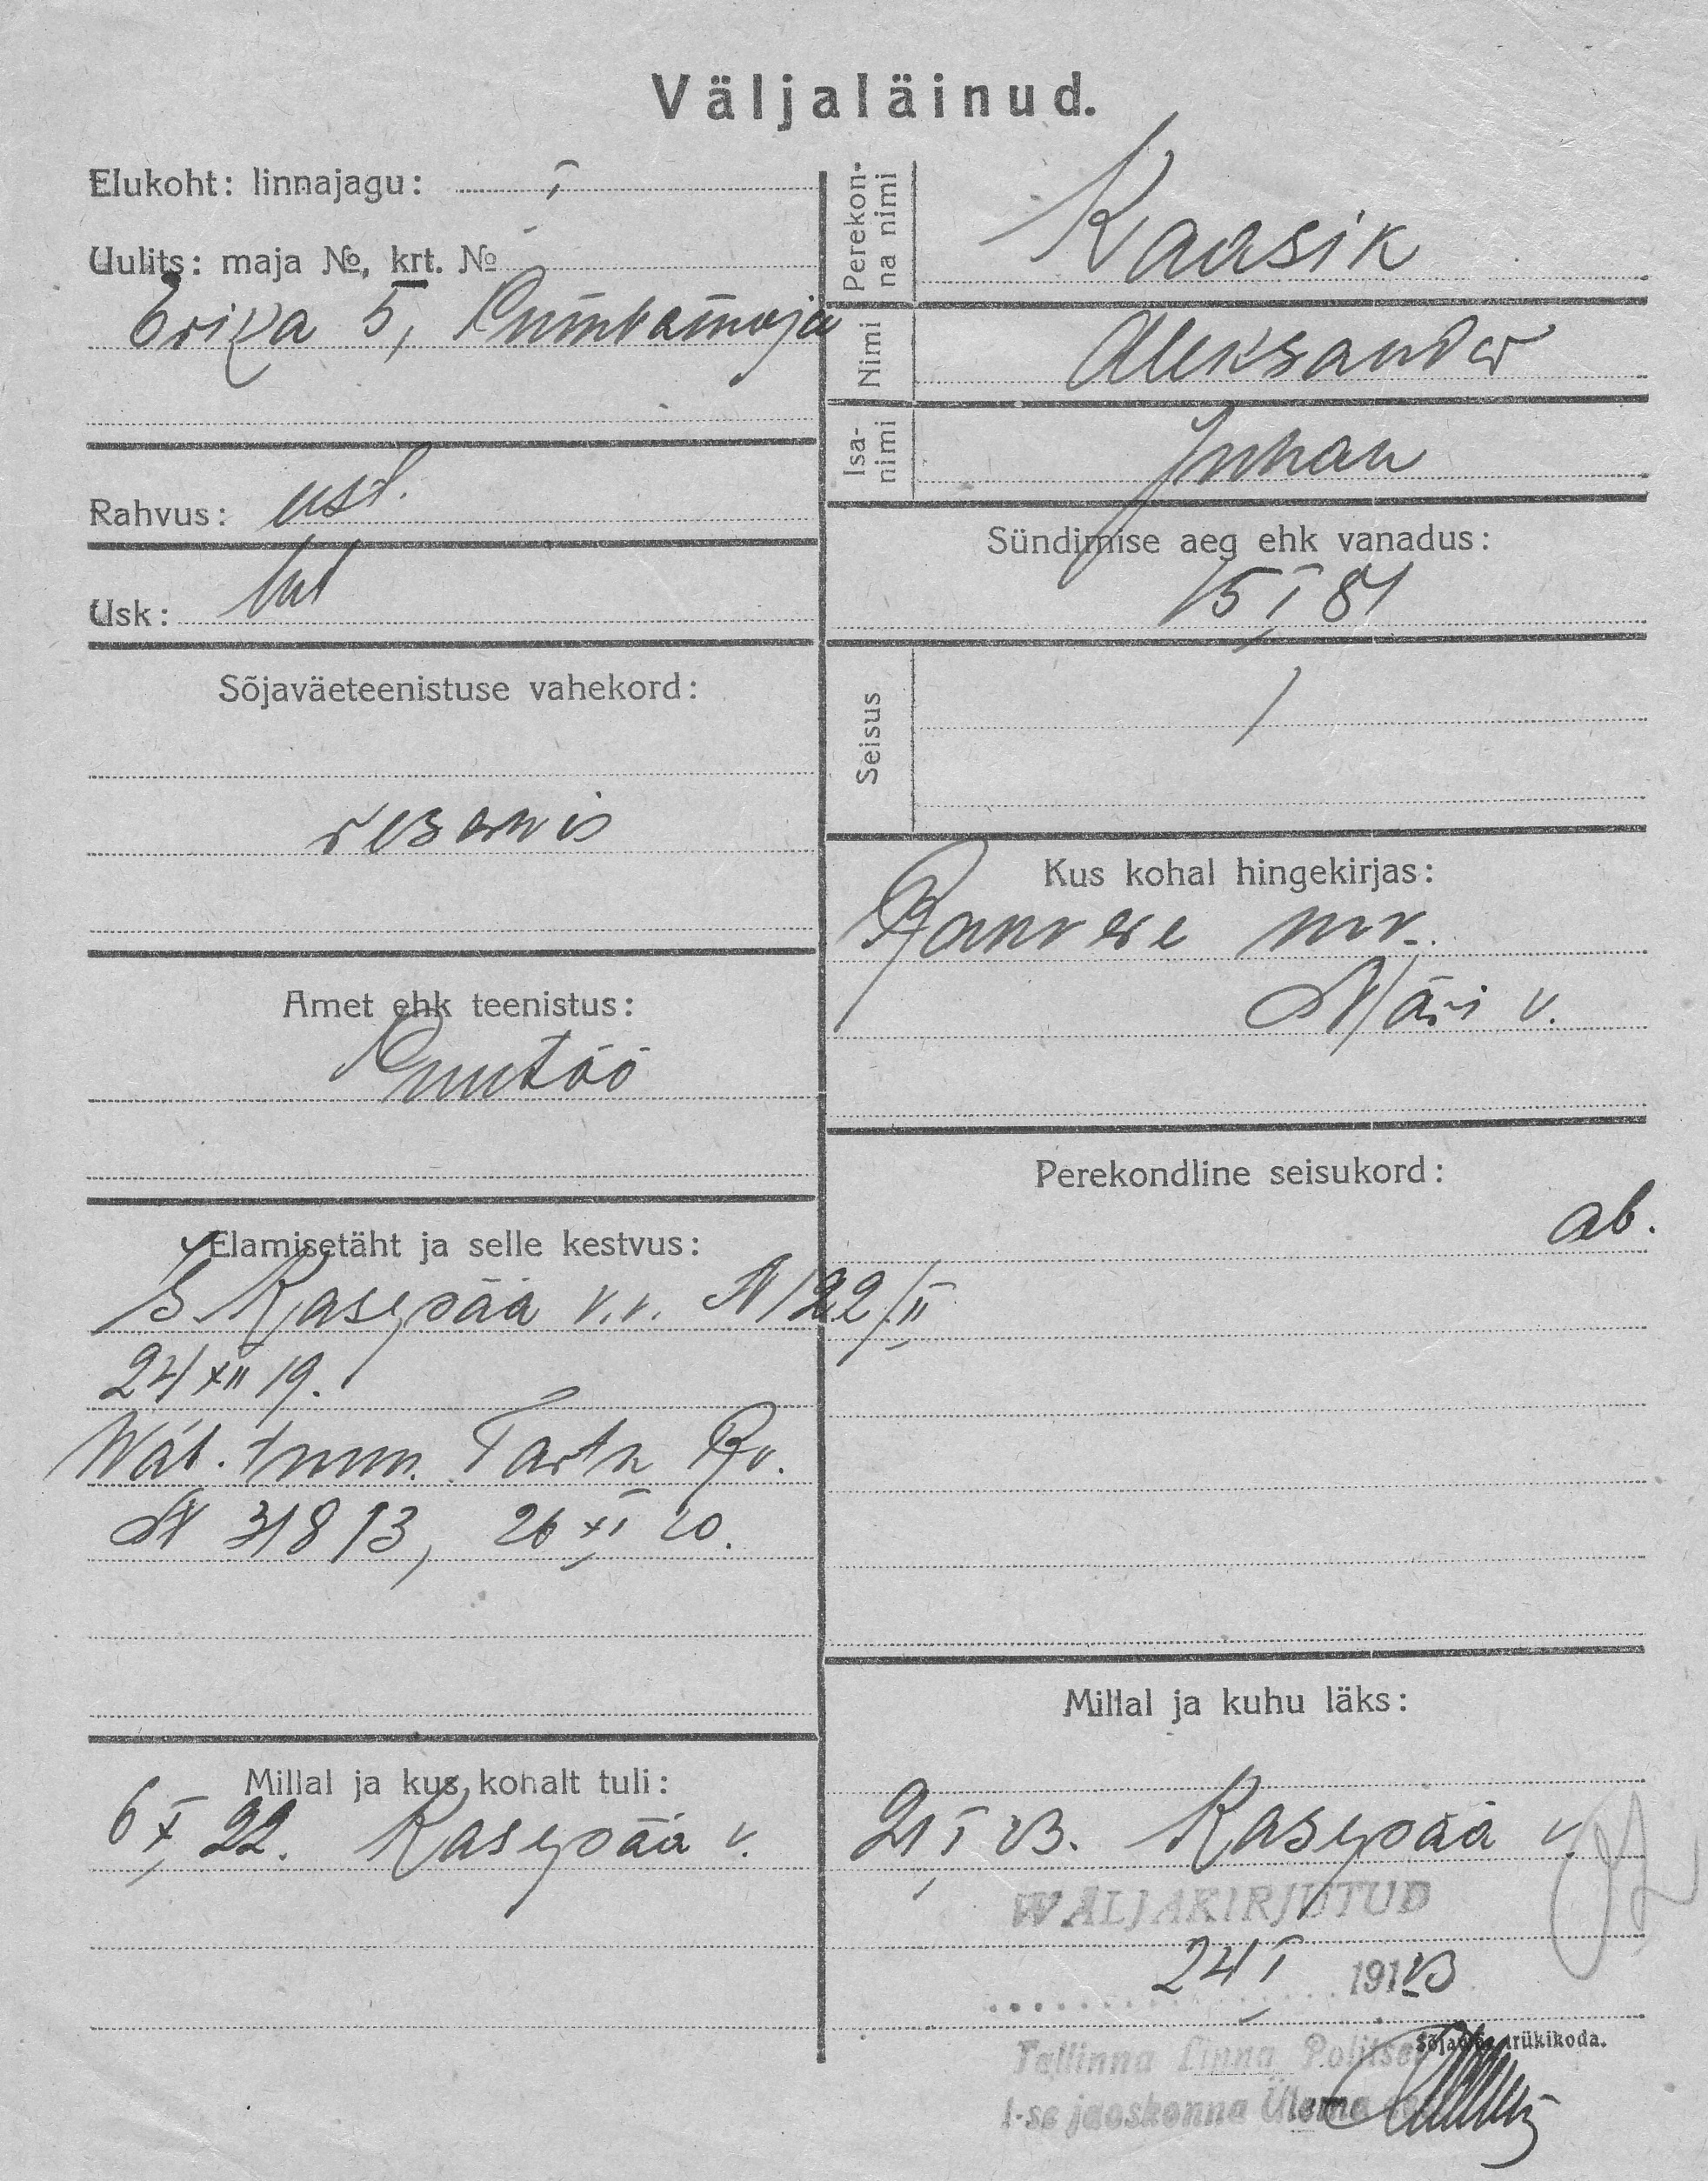 Väljaläinud.
Elukoht: linnajagu: I
Uulits: maja №, krt. №
Erika 5,
Rahvus: est.
Usk: lut
Sõjaväeteenistuse vahekord:
reservis
Amet ehk teenistus:
Puutöö
Elamisetäht ja selle kestvus:
Kasepää v.v. N 122/II
24 XII 19.
Tartu Rv.
N 31813, 26 XI 20.
Millal ja kus kohalt tuli:
6 X 22. Kasepää v.
Perekonna nimi
Kaasik
Nimi
Aleksander
Isanimi
Juhan
Sündimise aeg ehk vanadus:
15 I 81
Seisus
/
Kus kohal hingekirjas:
Rakvere
v.
Perekondline seisukord:
ab.
Millal ja kuhu läks:
21 I 23. Kasepää v.
WÄLJAKIRJUTUD
24 I 191 23
Sõjaväe trükikoda.
Tallinna Linna Politsei
1-se jaoskonna Ülema